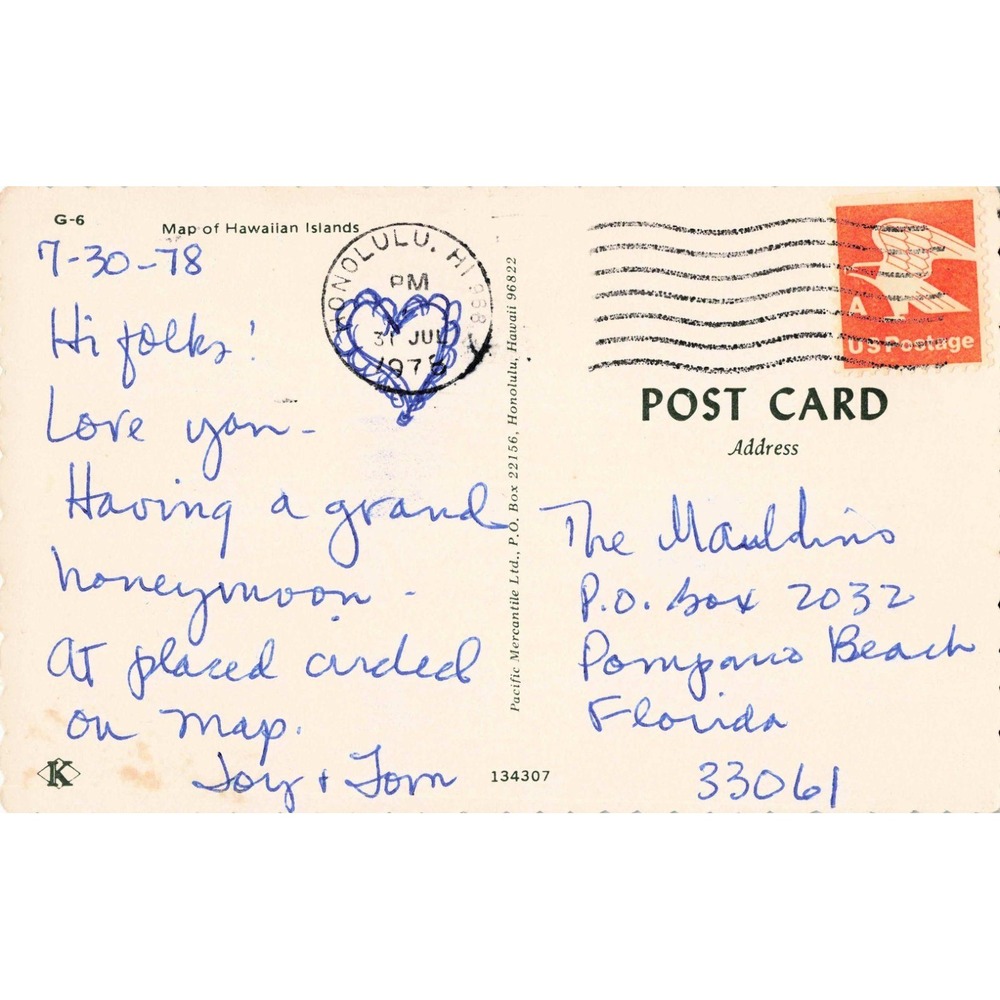 G-6
Map of Hawaiian Islands
7-30-78
Hi folks!
Love you-
Having a grand
honeymoon -
At placed circled
on map.
Joy + Tom
K
134307
HONOLULU, HI 968
PM
31 JUL
1978
Pacific Mercantile Ltd., P.O. Box 22156, Honolulu, Hawaii 96822
A
US Postage
POST CARD
Address
The Mauldins
P.O. Box 2032
Pompano Beach
Florida
33061